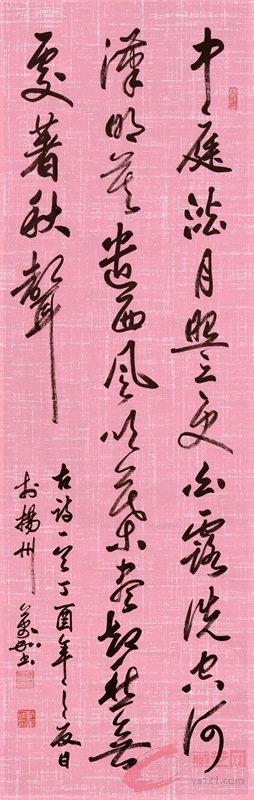 中庭澹月照三更白露洗空河
漢明莫遣西風吹葉盡却愁無
處著秋聲
古詩一首丁酉年之夏日
於揚州
書
ys121.com